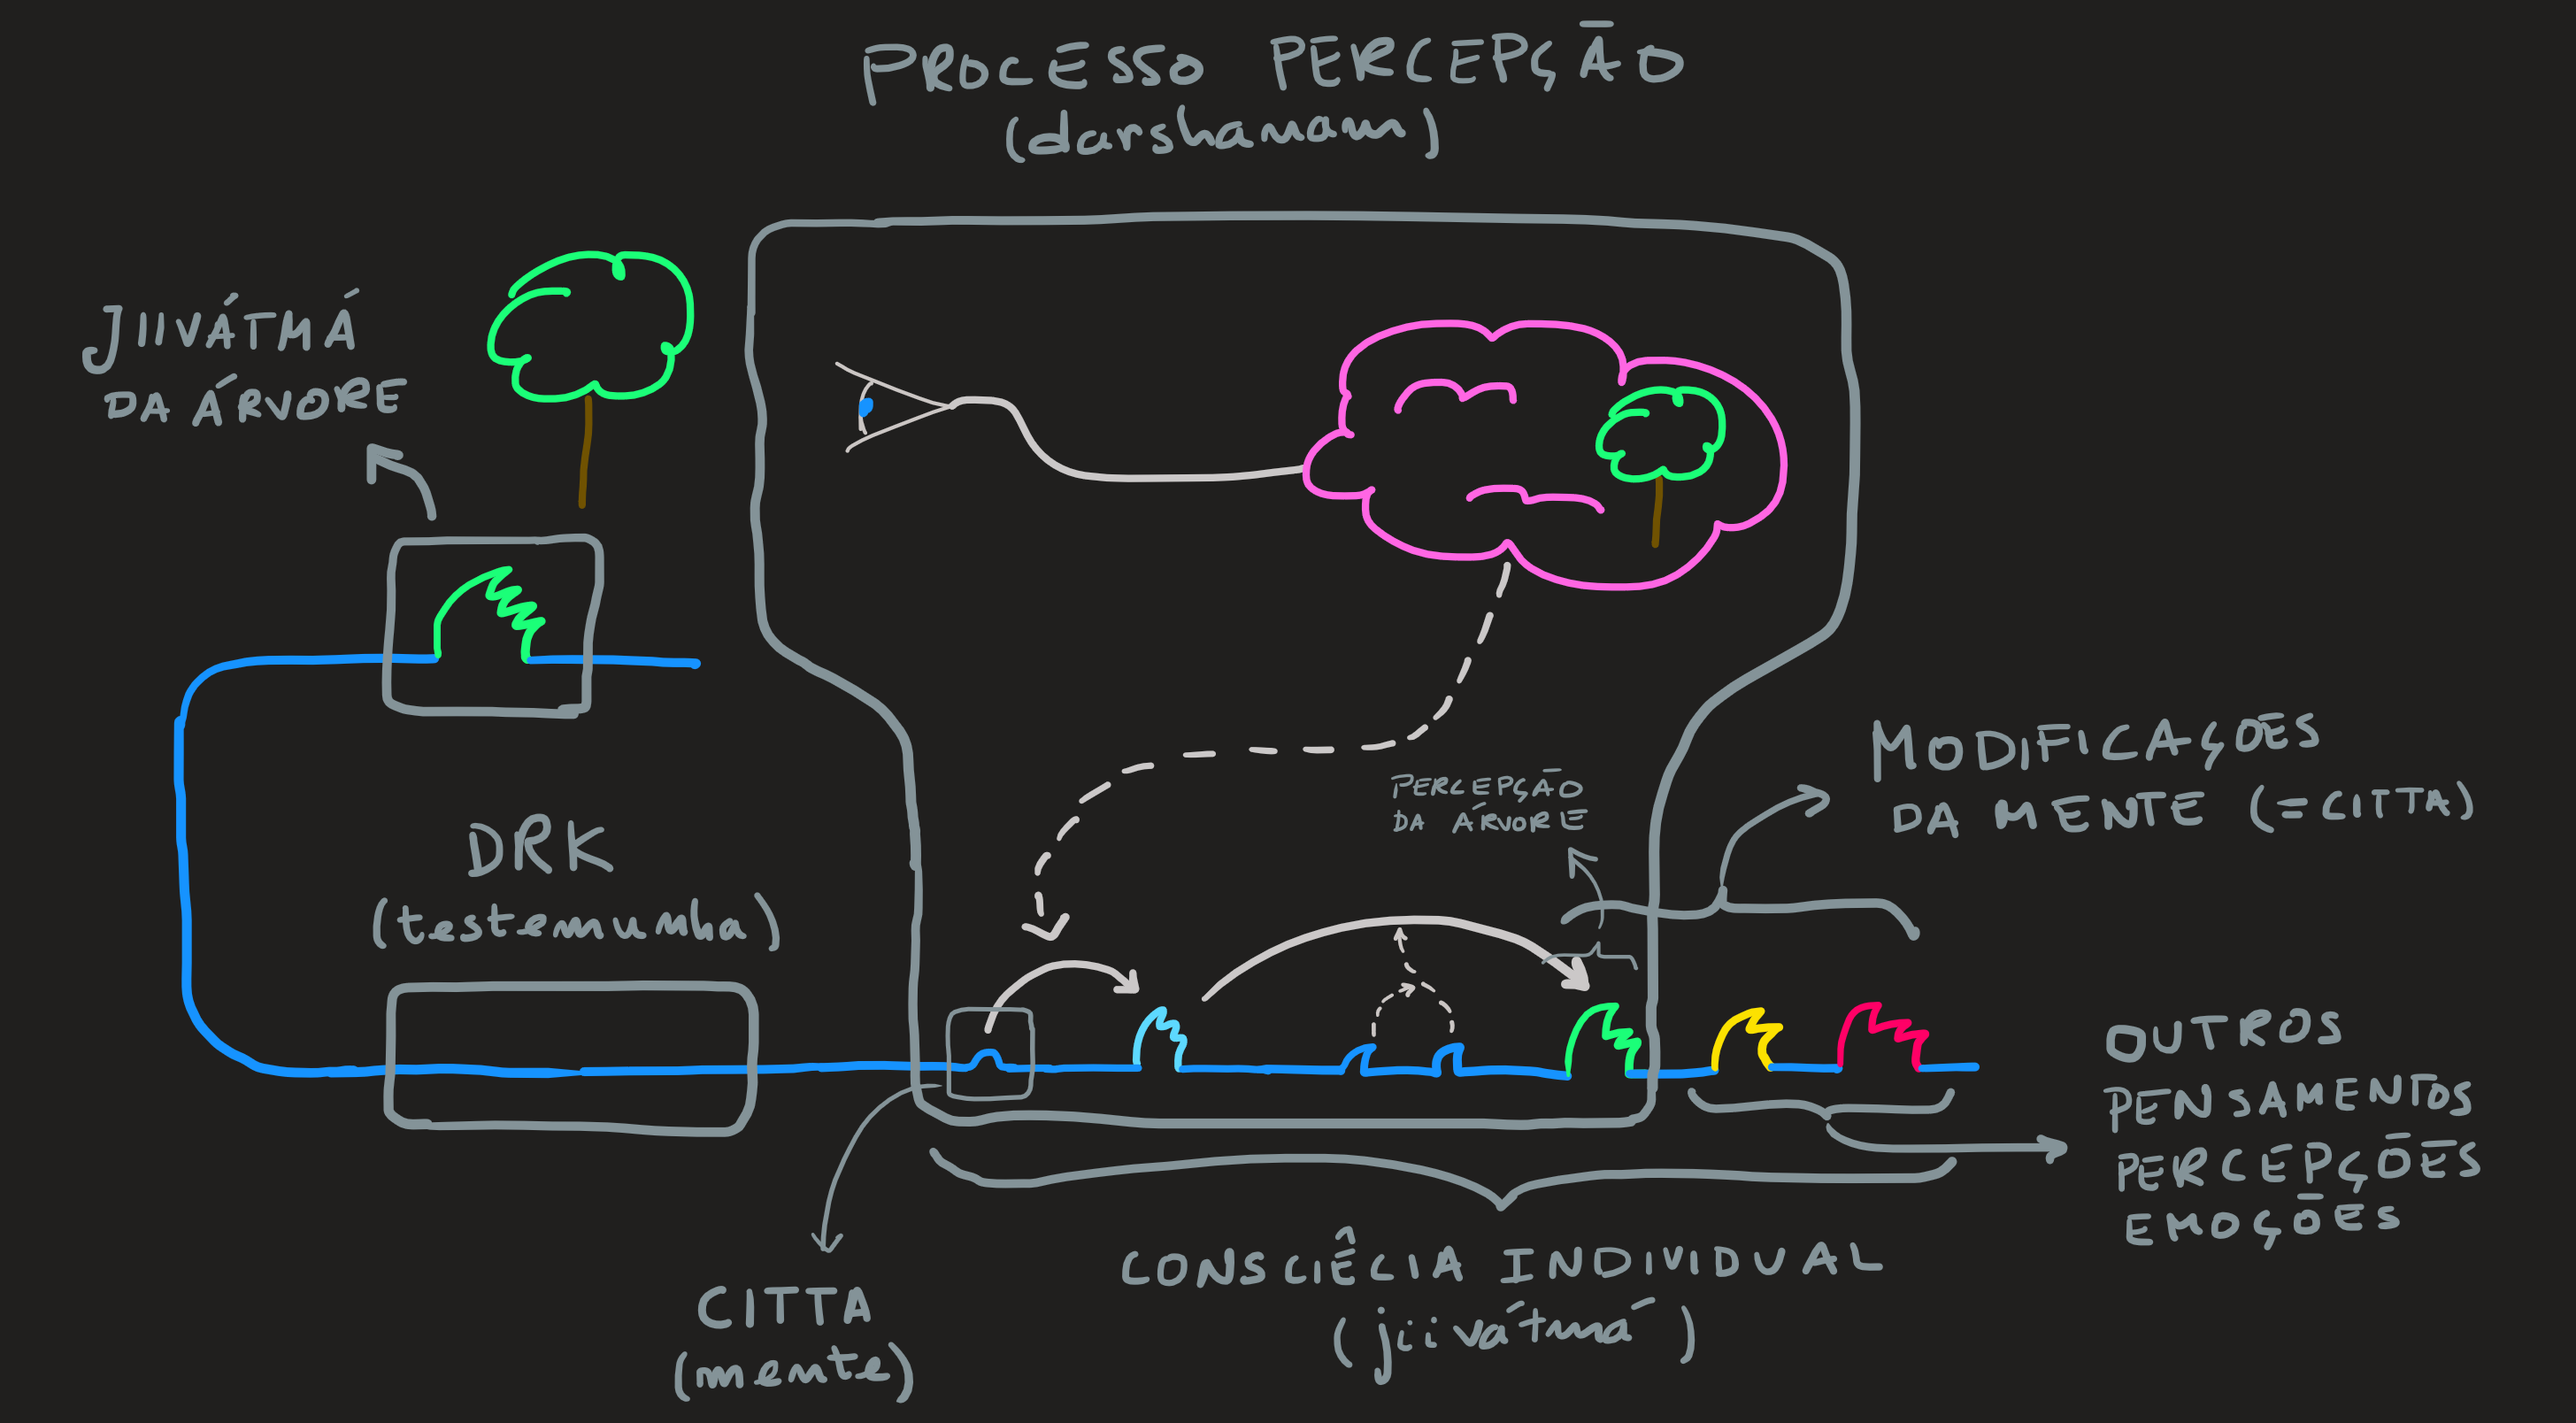 PROCESSO PERCEPÇĀO
(darshanam)
JIIVÁTMÁ
DA ÁRVORE
DRK
(testemunha)
PERCEPÇĀO
DA ÁRVORE
MODIFICAÇŌES
DA MENTE (=CITTA)
OUTROS
PENSAMENTOS
PERCEPÇŌES
EMOÇŌES
CITTA
(mente)
CONSCIÊCIA INDIVIDUAL
(jiivátmá)